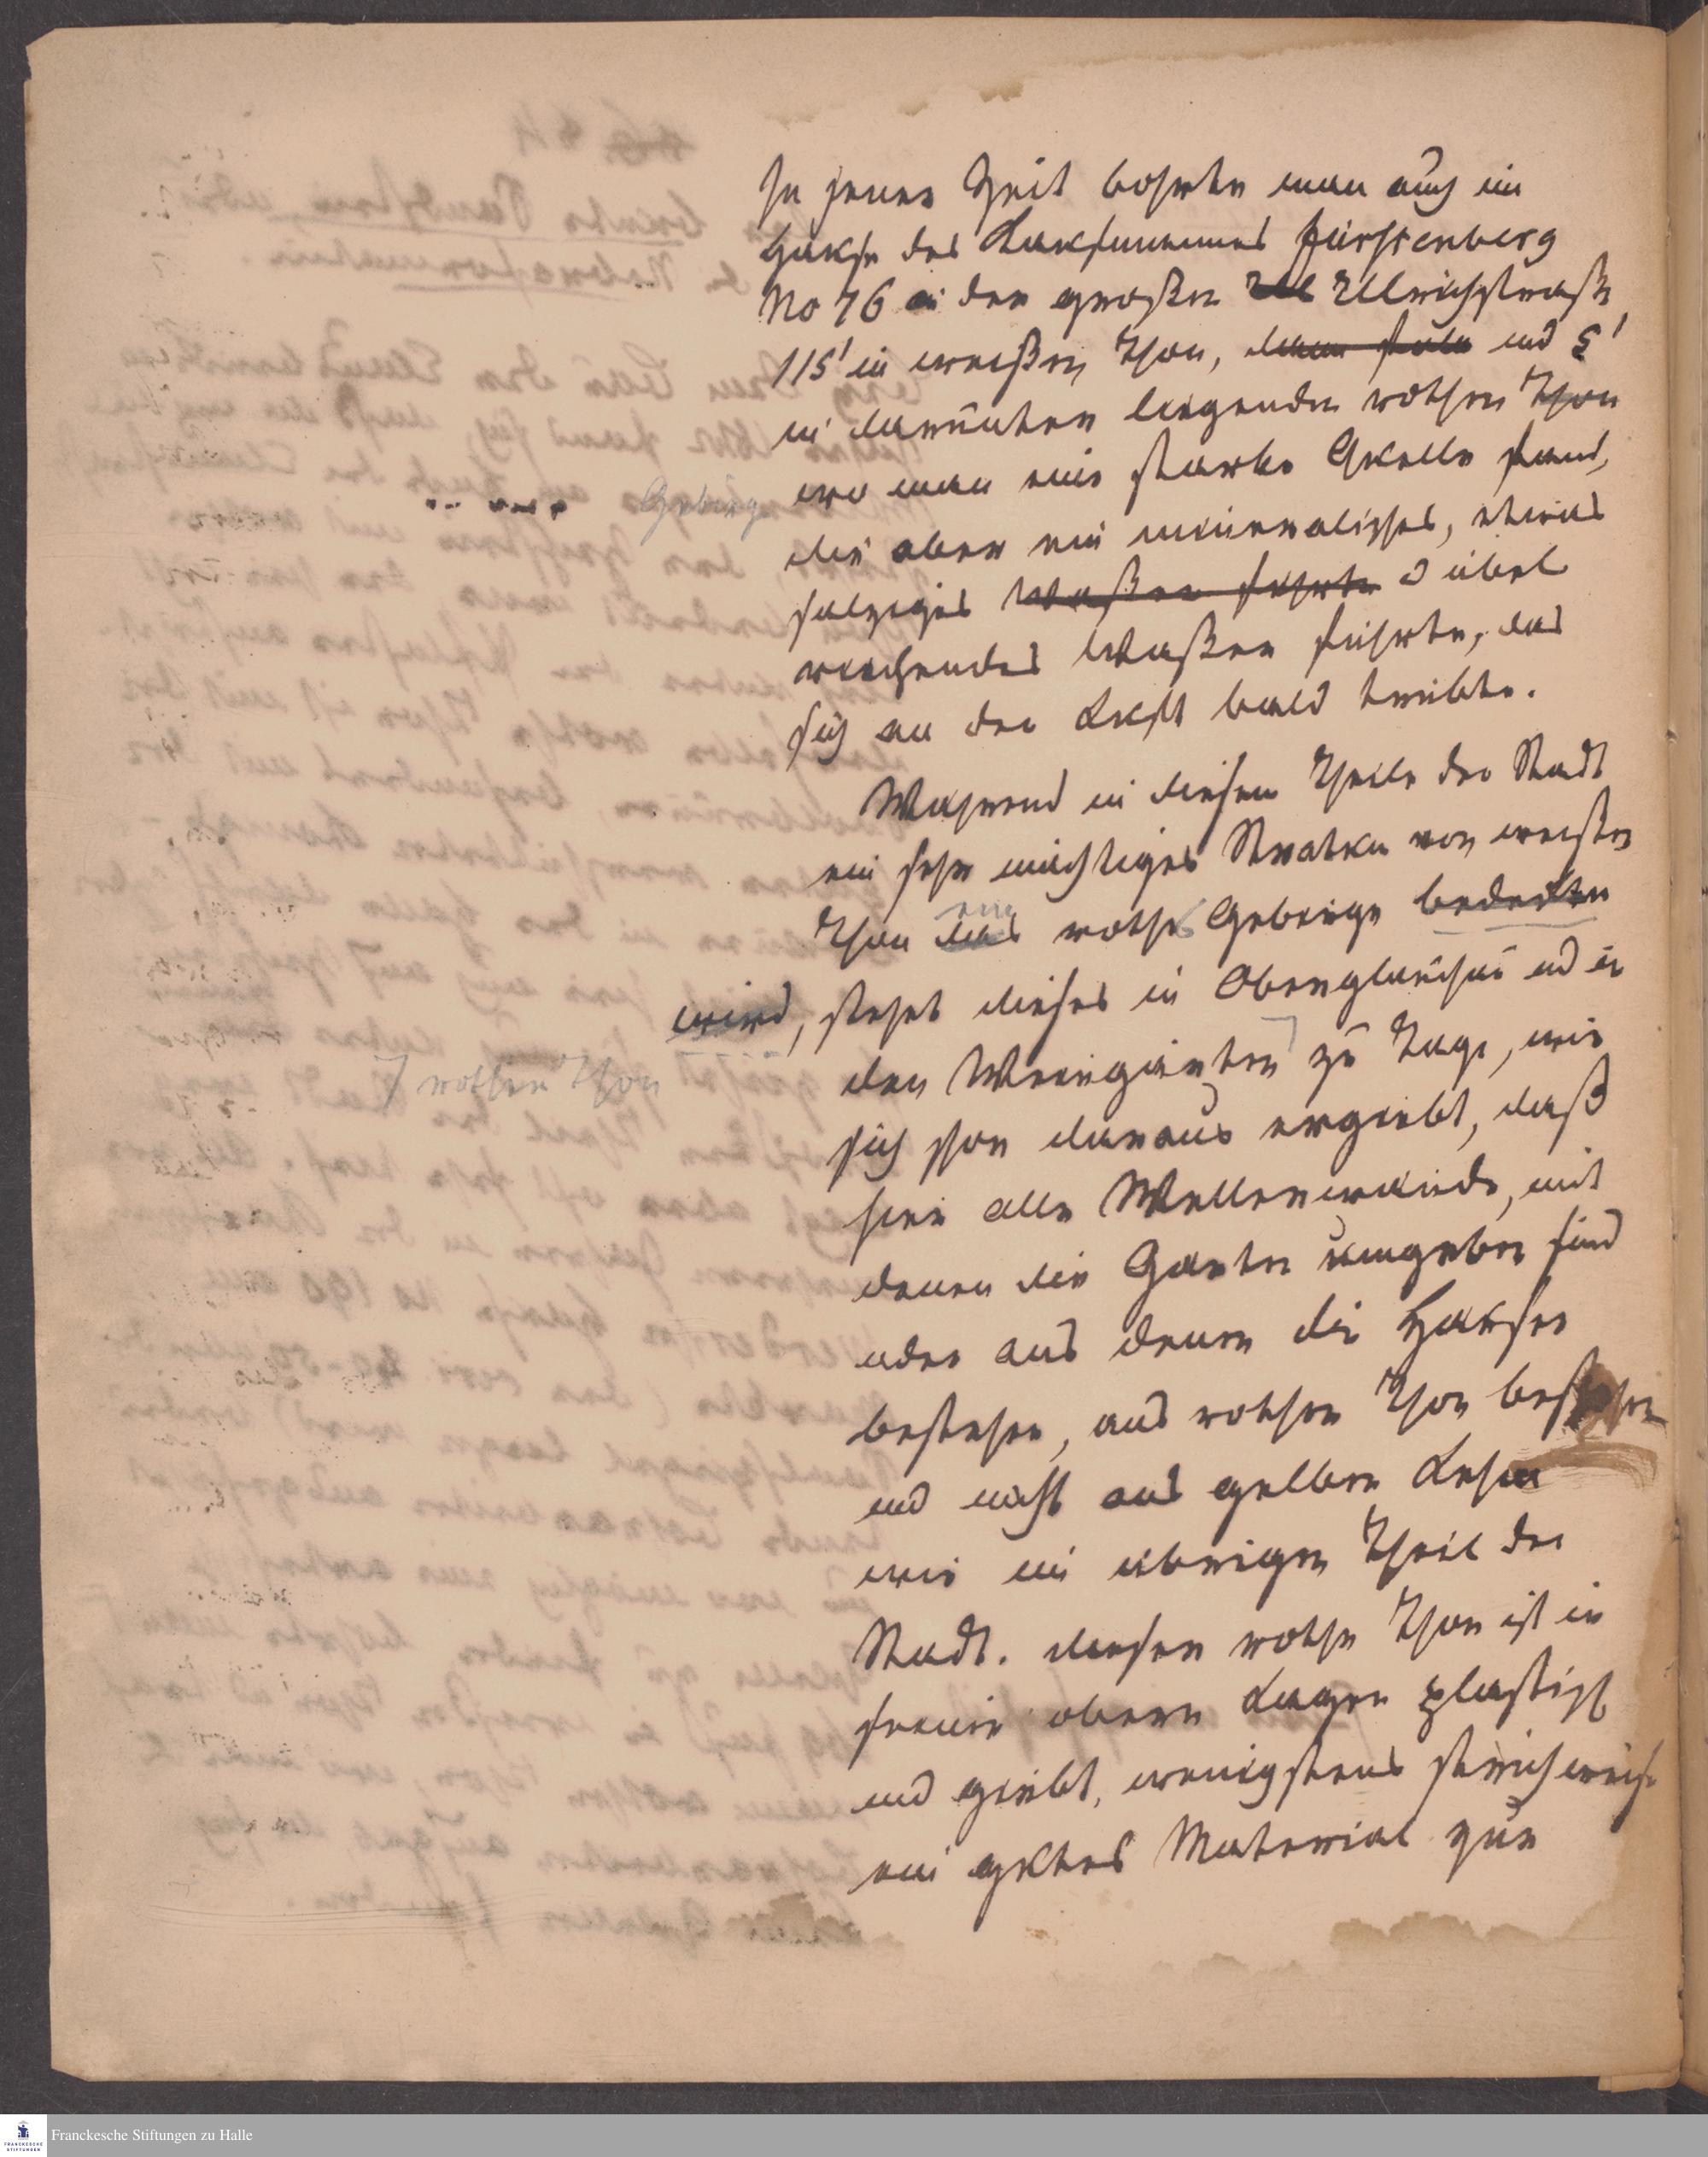 In jener Zeit bohrte man auch im
Hause des Kaufmannes Fürstenberg
No 76 in der großen Ull Ullrichstraße
115' in weißen Thon, dann sodann und 5'
in darunter liegenden rothen Thon
wo man eine starke Quelle fand,
Gebirge
die aber ein mineralisches, etwas
salziges Waßer führte u übel
riechendes Waßer führte, das
sich an der Luft bald trübte.
Während in diesem Theile der Stadt
ein sehr mächtiges Stratum von weißen
Thon das ein rothes Gebirge bedeckten
wird, steht dieses in Oberglaucha und in
den Weingärten zu Tage, wie
rothen Thon
sich schon daraus ergiebt, daß
hier alle Wellerwände, mit
denen die Gärten umgeben sind
oder aus denen die Häuser
bestehen, aus rothen Thon bestehen
und nicht aus gelben Lehm
wie im übrigen Theil der
Stadt. dieser rothe Thon ist in
seinen obern Lagen plastisch
und giebt, wenigstens strichweise
ein gutes Material zur
Franckesche Stiftungen zu Halle